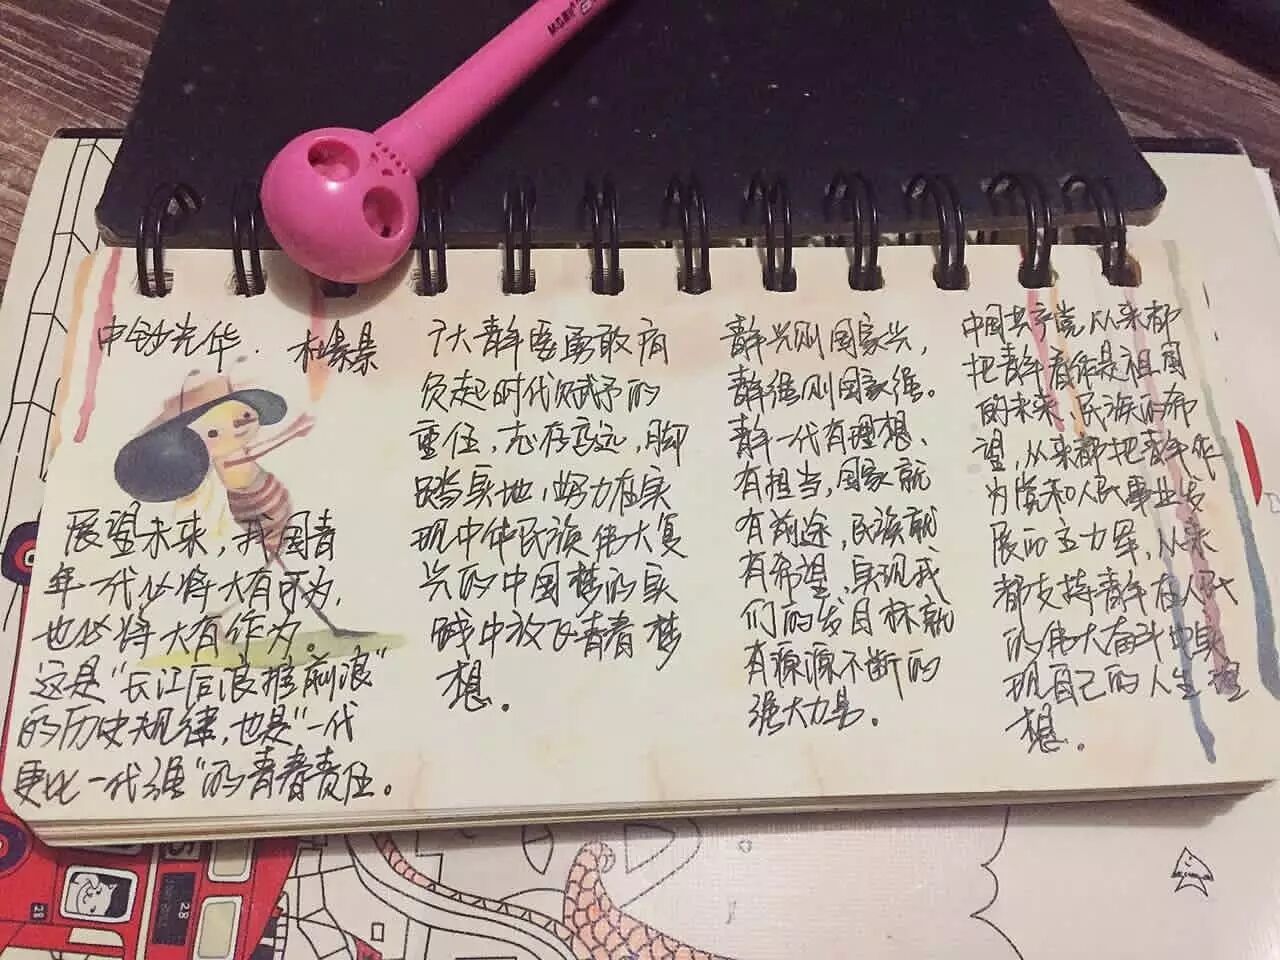 中钞光华.
展望未来，我国青
年一代必将大有可为，
也必将大有作为。
这是"长江后浪推前浪"
的历史规律，也是"一代
更比一代强"的青春责任。
广大青年要勇敢肩
负起时代赋予的
重任，志存高远，脚
踏实地，努力在实
现中华民族伟大复
兴的中国梦的实
践中放飞青春梦
想。
青年兴则国家兴，
青年强则国家强。
青年一代有理想、
有担当，国家就
有前途，民族就
有希望，实现我
们的发目标就
有源源不断的
强大力量。
中国共产党从来都
把青年看作是祖国
的未来、民族的希
望，从来都把青年作
为党和人民事业发
展的主力军，从来
都支持青年在人民
的伟大奋斗中实
现自己的人生理
想。
M&G晨光
28
28